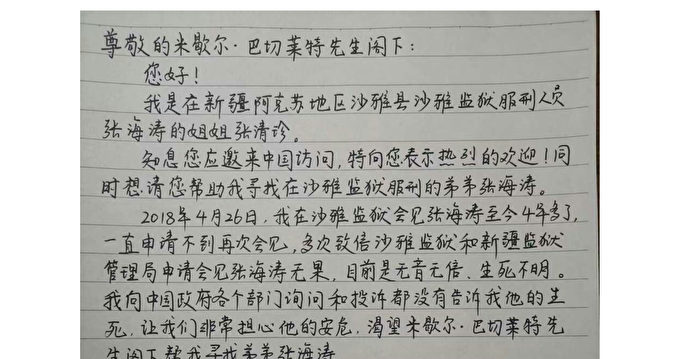 尊敬的米歇尔·巴切莱特先生阁下:
您好!
我是在新疆阿克苏地区沙雅县沙雅监狱服刑人员
张海涛的姐姐张清珍。
知息您应邀来中国访问,特向您表示热烈的欢迎!同
时想请您帮助我寻找在沙雅监狱服刑的弟弟张海涛。
2018年4月26日,我在沙雅监狱会见张海涛至今4年多了,
一直申请不到再次会见,多次致信沙雅监狱和新疆监狱
管理局申请会见张海涛无果,目前是无音无信、生死不明。
我向中国政府各个部门询问和投诉都没有告诉我他的生
死,让我们非常担心他的安危,渴望米歇尔·巴切莱特先
生阁下帮我寻找弟弟张海涛